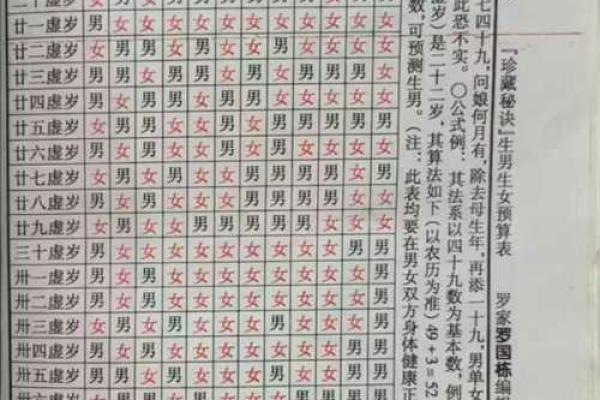 『珍藏秘诀』生男生女预算表 罗家罗国栋编
七四十九，问娘何月有，除去母生年，再添一十九，男单女
此恐不实。〇公式例：其法系以四十九数为基本数，例
虚岁）是二十二岁，其算法如下（以农历为准）49+3=52
数，可预测生男。（注：此表均要在男女双方身体健康正
廿一虚岁 男 女 女 女 女 女 女 女 女 女 女 女
廿二虚岁 女 男 男 女 男 女 女 男 女 女 女 女
廿三虚岁 男 男 女 男 男 女 男 女 男 男 男 女
廿四虚岁 男 女 男 男 女 男 男 女 女 女 女 女
廿五虚岁 女 男 男 女 女 男 女 男 男 男 男 男
廿六虚岁 男 女 男 女 女 男 女 男 女 女 女 女
廿七虚岁 女 男 女 男 女 女 男 男 男 男 女 男
廿八虚岁 男 女 男 女 女 女 男 男 男 男 女 女
廿九虚岁 女 男 女 女 男 男 男 男 男 女 女 女
三十虚岁 男 女 女 女 女 女 女 女 女 女 男 男
卅一虚岁 男 女 男 女 女 女 女 女 女 女 女 男
卅二虚岁 男 女 男 女 女 女 女 女 女 女 女 男
卅三虚岁 女 男 女 男 女 女 女 男 女 女 女 男
卅四虚岁 男 女 男 女 女 女 女 女 女 女 男 男
卅五虚岁 男 男 女 男 女 女 女 男 女 女 男 男